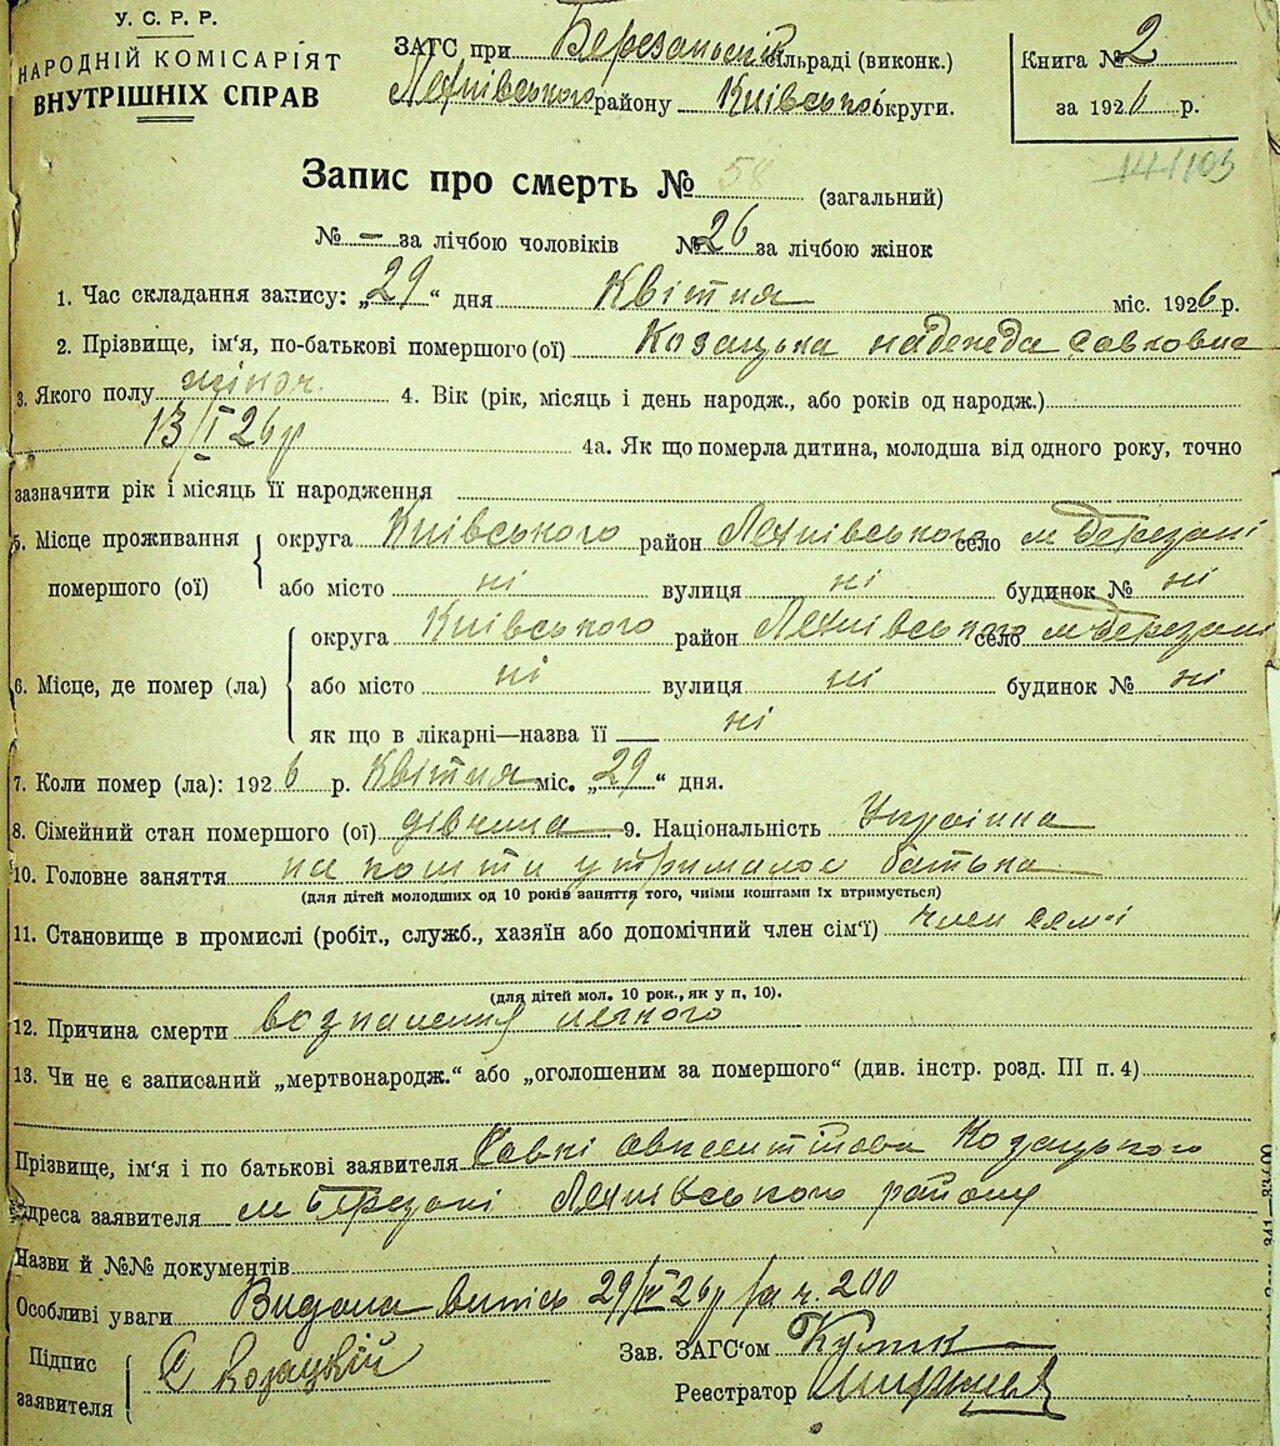 У. С. Р. Р.
НАРОДНІЙ КОМІСАРІЯТ
ВНУТРІШНІХ СПРАВ
ЗАГС при Березанській сільраді (виконк.)
району Київської округи.
Книга № 2
за 1926 р.
141/103
Запис про смерть № 58 (загальний)
№ — за лічбою чоловіків № 26 за лічбою жінок
1. Час складання запису: „29“ дня Квітня міс. 1926 р.
2. Прізвище, ім'я, по-батькові помершого (ої) Козацька Надежда Савковна
3. Якого полу жіноч. 4. Вік (рік, місяць і день народж., або років од народж.)
13/I 26 р
4а. Як що померла дитина, молодша від одного року, точно
зазначити рік і місяць її народження
5. Місце проживання помершого (ої)
округа Київського район село м Березані
або місто ні вулиця ні будинок № ні
6. Місце, де помер (ла)
округа Київського район село м Березані
або місто ні вулиця ні будинок № ні
як що в лікарні—назва її ні
7. Коли помер (ла): 1926 р. Квітня міс. „29“ дня.
8. Сімейний стан помершого (ої) дівчина 9. Національність Українка
10. Головне заняття на кошти батька
(для дітей молодших од 10 років заняття того, чиїми коштами їх втримується)
11. Становище в промислі (робіт., служб., хазяїн або допомічний член сім'ї) член сем'і
(для дітей мол. 10 рок., як у п, 10).
12. Причина смерти
13. Чи не є записаний „мертвонародж.“ або „оголошеним за помершого“ (див. інстр. розд. III п. 4)
Прізвище, ім'я і по батькові заявителя Савкі Козацького
Адреса заявителя м Березані району
Назви й №№ документів
Особливі уваги Видана випісь 29/IV 26 р за ч. 200
Підпис заявителя С Козацкій
Зав. ЗАГС'ом
Реєстратор